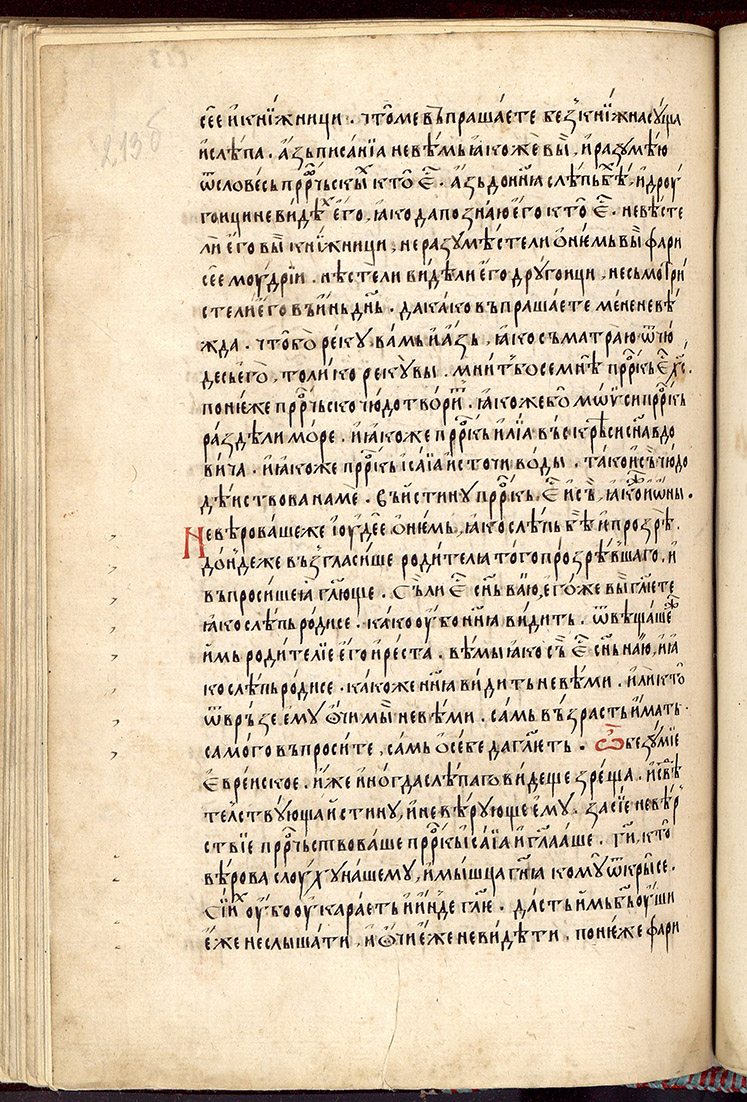 213б
сеѐ и҆ книжници · что̀ ме въпрашаете без̾книжна сꙋща
и҆ слѣпа · а҆зь писанїа не вѣмь ꙗкоже вы̀, и҆ разꙋмѣю
ѿ словесь прⷪ҇рчьскыⷯ кто̀ є҆сⷮ · а҆зь до нн҃ꙗ слѣпь бѣ, и҆ дрꙋ
гоици не видѣⷯ є҆го, ꙗко да познаю є҆го кто̀ є҆сⷮ · не вѣсте
ли є҆го вы̀ книжници, не разꙋмѣсте ли ѡ҆ нѥмь вы̀ фари
сеѐ мꙋдрїи · нѣсте ли видѣли є҆го дрꙋгоици, не сьмотри
сте ли є҆го вь инь дн҃ь · да како въпрашаете мене невѣ
жда · что̀ бо̀ рекꙋ вамь и҆ азь, ꙗко сьматраю ѿ чю
десь є҆го̀, толико рекꙋ вы · мнит бо се мнѣ прⷪ҇ркь є҆сⷮ хс҃ ·
понѥже прⷪ҇рчьско чюдо твори́ⷮ · ꙗкоже бо̀ мѡѵси прⷪ҇ркь
раздѣли море · и҆ ꙗкоже прⷪ҇ркь илїа вьскрⷭ҇си сн҃а вдо
вича · и҆ ꙗкоже прⷪ҇ркь ісаїа источи воды · тако и сь чюдо
дѣиствова на мѐ · въ истинꙋ прⷪ҇ркь є҆сⷮ и сь, ꙗкоⷤ и ѡ҆ны ·
Не вѣровашеже іꙋдеѐ ѡ҆ нѥмь, ꙗко слѣпь бѣ и҆ прозрѣ ·
дондеже вьз̾гласише родителꙗ того прозрѣвшаго, и҆
въпросише ꙗ гл҃юще · Сь ли є҆сⷮ сн҃ь ваю, егоже вы гл҃ете
ꙗко слѣпь родисе · како ꙋбо нн҃ꙗ видить · ѿвѣщашеⷤ
имь родителїе є҆го и҆ реста · вѣмы ꙗко сь є҆сⷮ сн҃ь наю, и ꙗ
ко слѣпь родисе · какоже нн҃ꙗ видить не вѣми · или кто̀
ѿврьзе емꙋ ѻчи мы не вѣми · самь въздрасть имать ·
самого въпросите, самь ѡ҆ себе да гл҃еть · Ѽ безꙋмїе
Евреиское · иже иногда слѣпаго видеще зреща · и҆ свѣⷣ
телствꙋюща истинꙋ, и҆ не вѣрꙋюще ємꙋ · за сїе невѣр
ствїе прⷪ҇рчьствоваше прⷪ҇ркь ісаїа и҆ гл҃ааше · Гⷭ҇и, кто̀
вѣрова слꙋхꙋ нашемꙋ, и҆ мышца гн҃ꙗ комꙋ ѿкрысе ·
Сїиⷯ ꙋбо ꙋкараеть и инде гл҃ѥ · дасть имь бь҃ ꙋши
єже не слышати, и҆ ѻчи єже не видѣти · понѥже фари